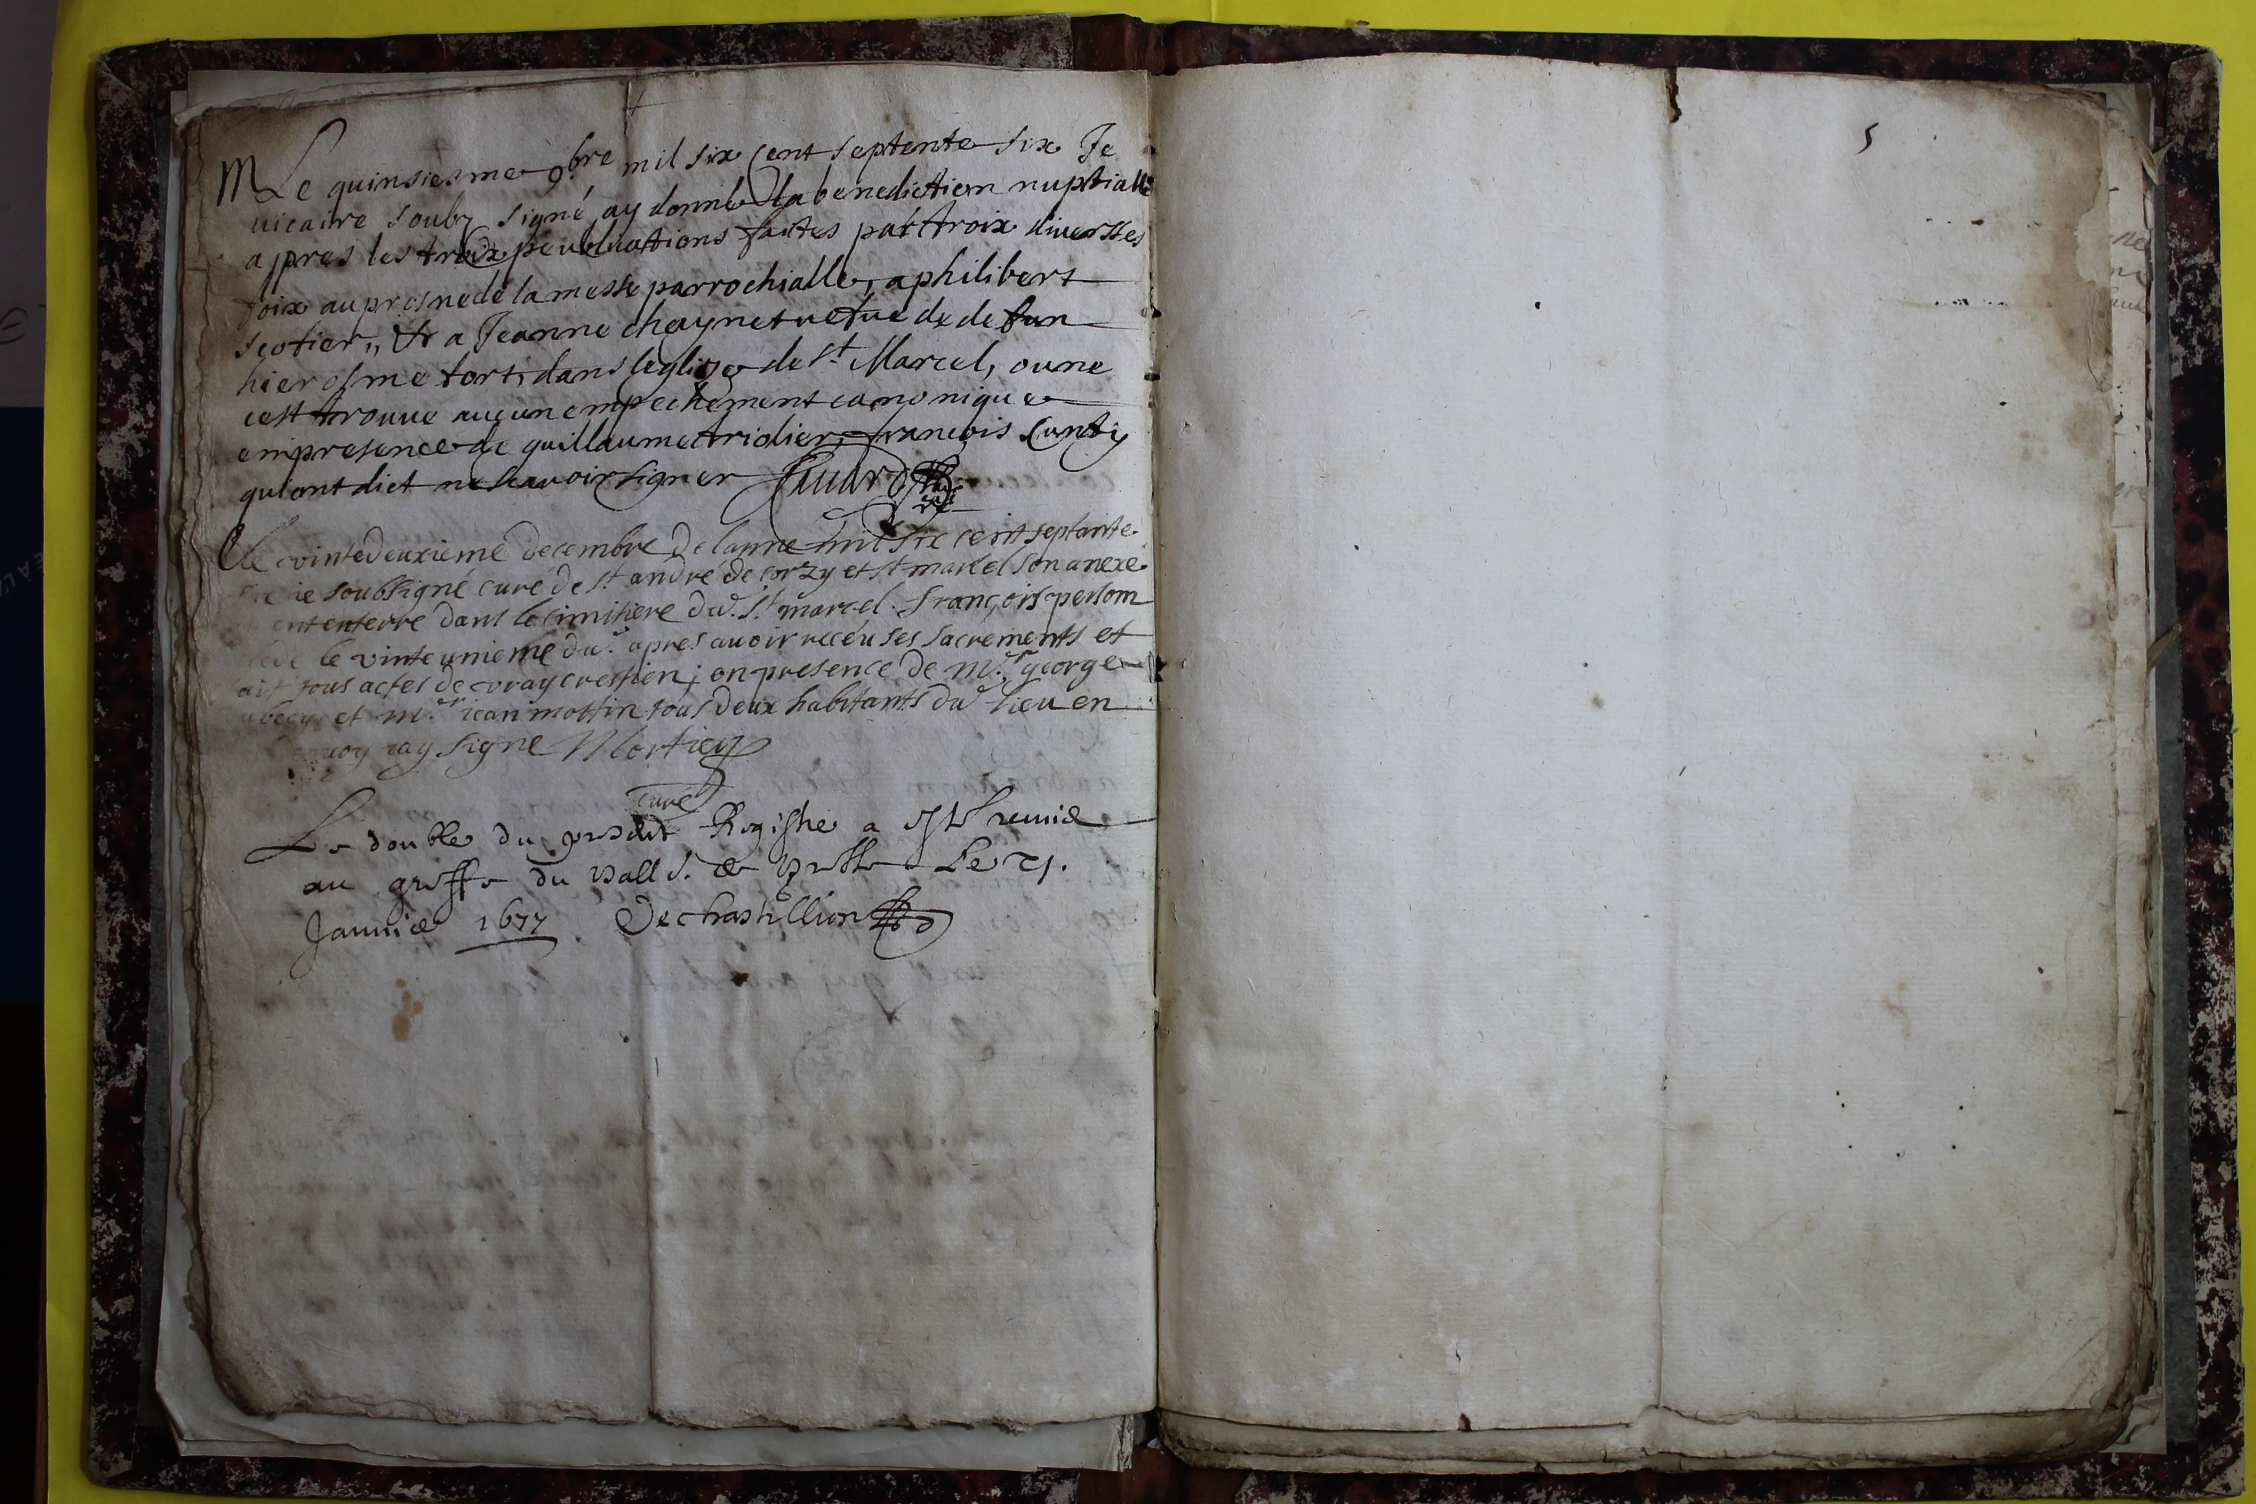 M Le quinsiesme 9bre mil six cent septente six Je
uicaire soubz signé ay donné la benediction nuptialle
appres les troix peublicattions faites par troix diversses
foix au prosne de la messe parrochialle, a philibert
scotier,, Et a Jeanne chaynet uefue de defun
hierosme forti dans leglize de st Marcel, ou ne
cest trouue aucun empechement canonique
en presence de guillaume tridier, francois Cunty
qui ont dict ne scauoir signer
le vintedeuxieme decembre de lanne mil six cent septante
ie soubsigné curé de st andré de corzy et st marcel son anexe
enterré dans le cimitiere du.t st marcel. françois persom
le vinteunieme du.t apres auoir recéu ses sacrements et
fait tous actes de vray crestien; en presence de m.r george
et m.r iean mottin tous deux habitants du.t lieu en
quoy iay signe Mortier
curé
Le double du present Registre a esté remis
au greffe du Balle. de Bresse Le 21.
Januier 1677 Dechastillion
5